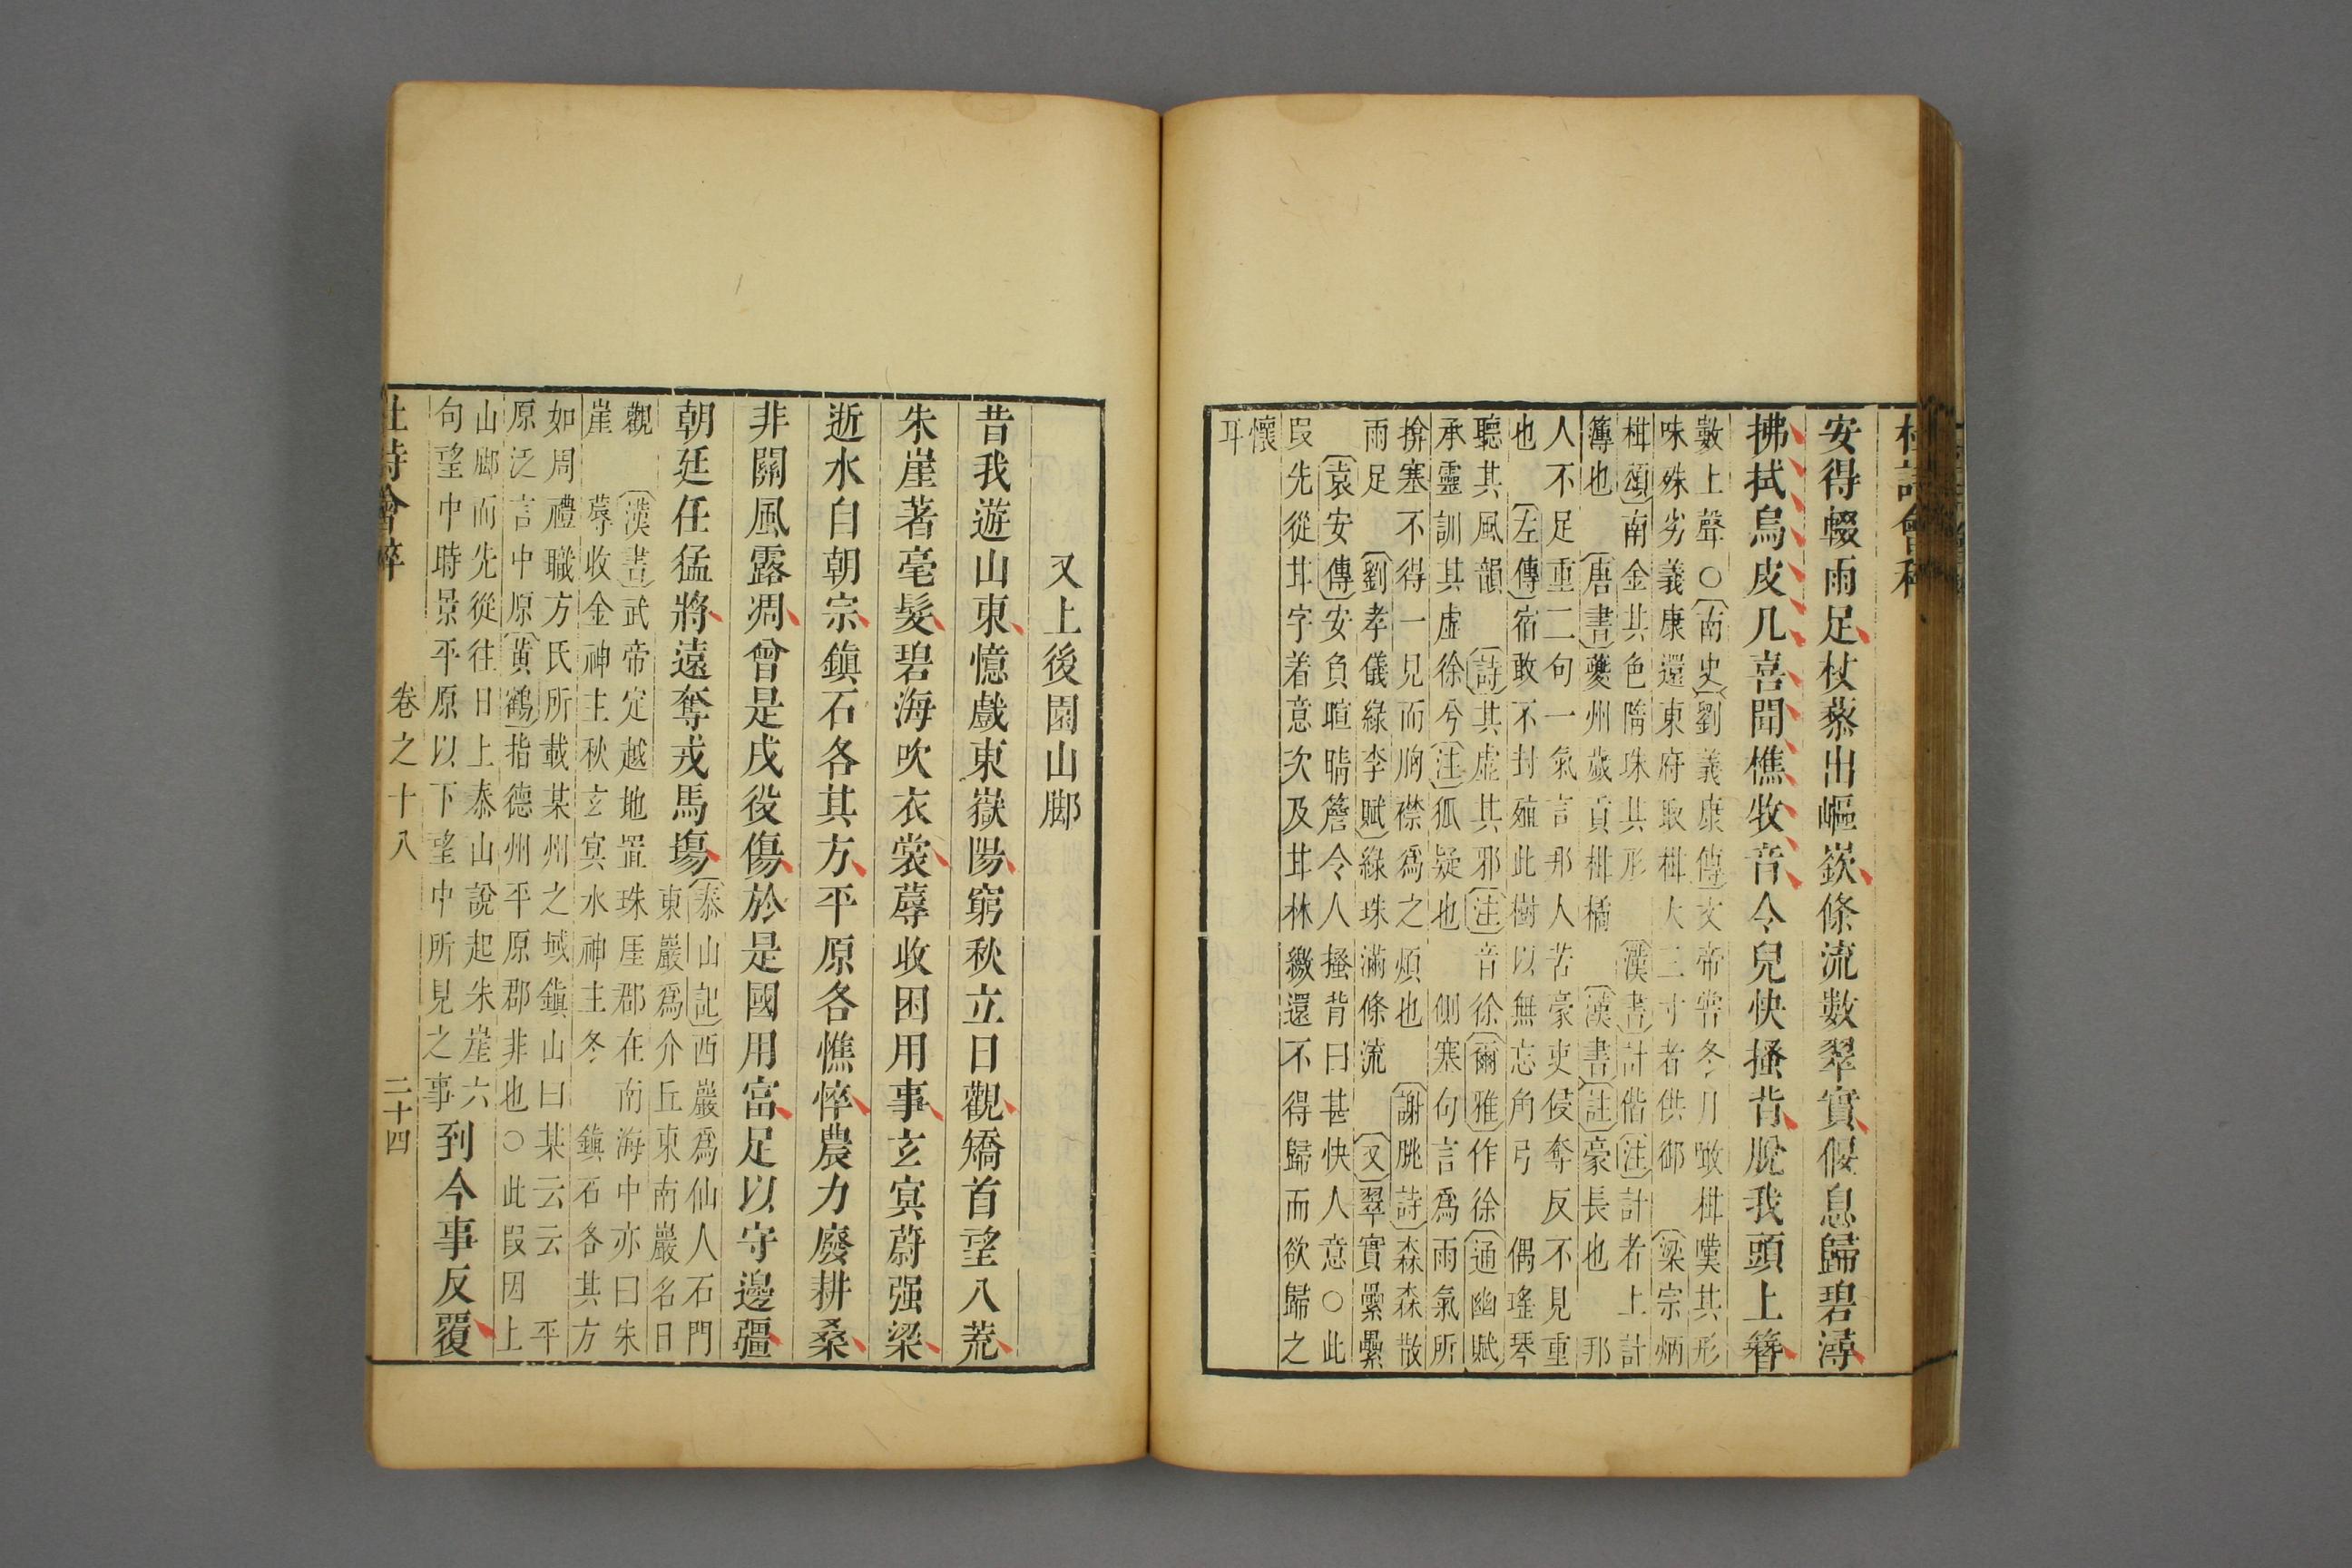 杜詩會稡
安得輟雨足杖藜出嶇嶔條流數翠實偃息歸碧潯
拂拭烏皮几喜聞樵牧音令兒快搔背脫我頭上簪
數上聲○南史劉義康傳文帝嘗冬月噉柑嘆其形
味殊劣義康還東府取柑大三寸者供御 梁宗炳
柑頌南金其色隋珠其形 漢書計偕注計者上計
簿也 唐書夔州歲貢柑橘 漢書註豪長也 那
人不足重二句一氣言那人苦豪吏侵奪反不見重
也 左傳宿敢不封殖此樹以無忘角弓 偶瑤琴
聽其風韻 詩其虛其邪注音徐爾雅作徐通幽賦
承靈訓其虛徐兮注狐疑也 側塞句言爲雨氣所
揜塞不得一見而胸襟爲之煩也 謝朓詩森森散
雨足 劉孝儀綠李賦綠珠滿條流 又翠實纍纍
袁安傳安負暄晴簷令人搔背曰甚快人意○此
段先從甘字着意次及甘林繳還不得歸而欲歸之
懷
耳
又上後園山腳
昔我遊山東憶戲東嶽陽窮秋立日觀矯首望八荒
朱崖著毫髮碧海吹衣裳蓐收困用事玄冥蔚强梁
逝水自朝宗鎮石各其方平原各憔悴農力廢耕桑
非關風露凋曾是戍役傷於是國用富足以守邊疆
朝廷任猛將遠奪戎馬場
泰山記西巖爲仙人石門
東巖爲介丘東南巖名日
觀 漢書武帝定越地置珠厓郡在南海中亦曰朱
崖 蓐收金神主秋玄冥水神主冬 鎮石各其方
如周禮職方氏所載某州之域鎮山曰某云云 平
原泛言中原黃鶴指德州平原郡非也○此段因上
山腳而先從往日上泰山說起朱崖六
句望中時景平原以下望中所見之事
到今事反覆
杜詩會稡
卷之十八
二十四